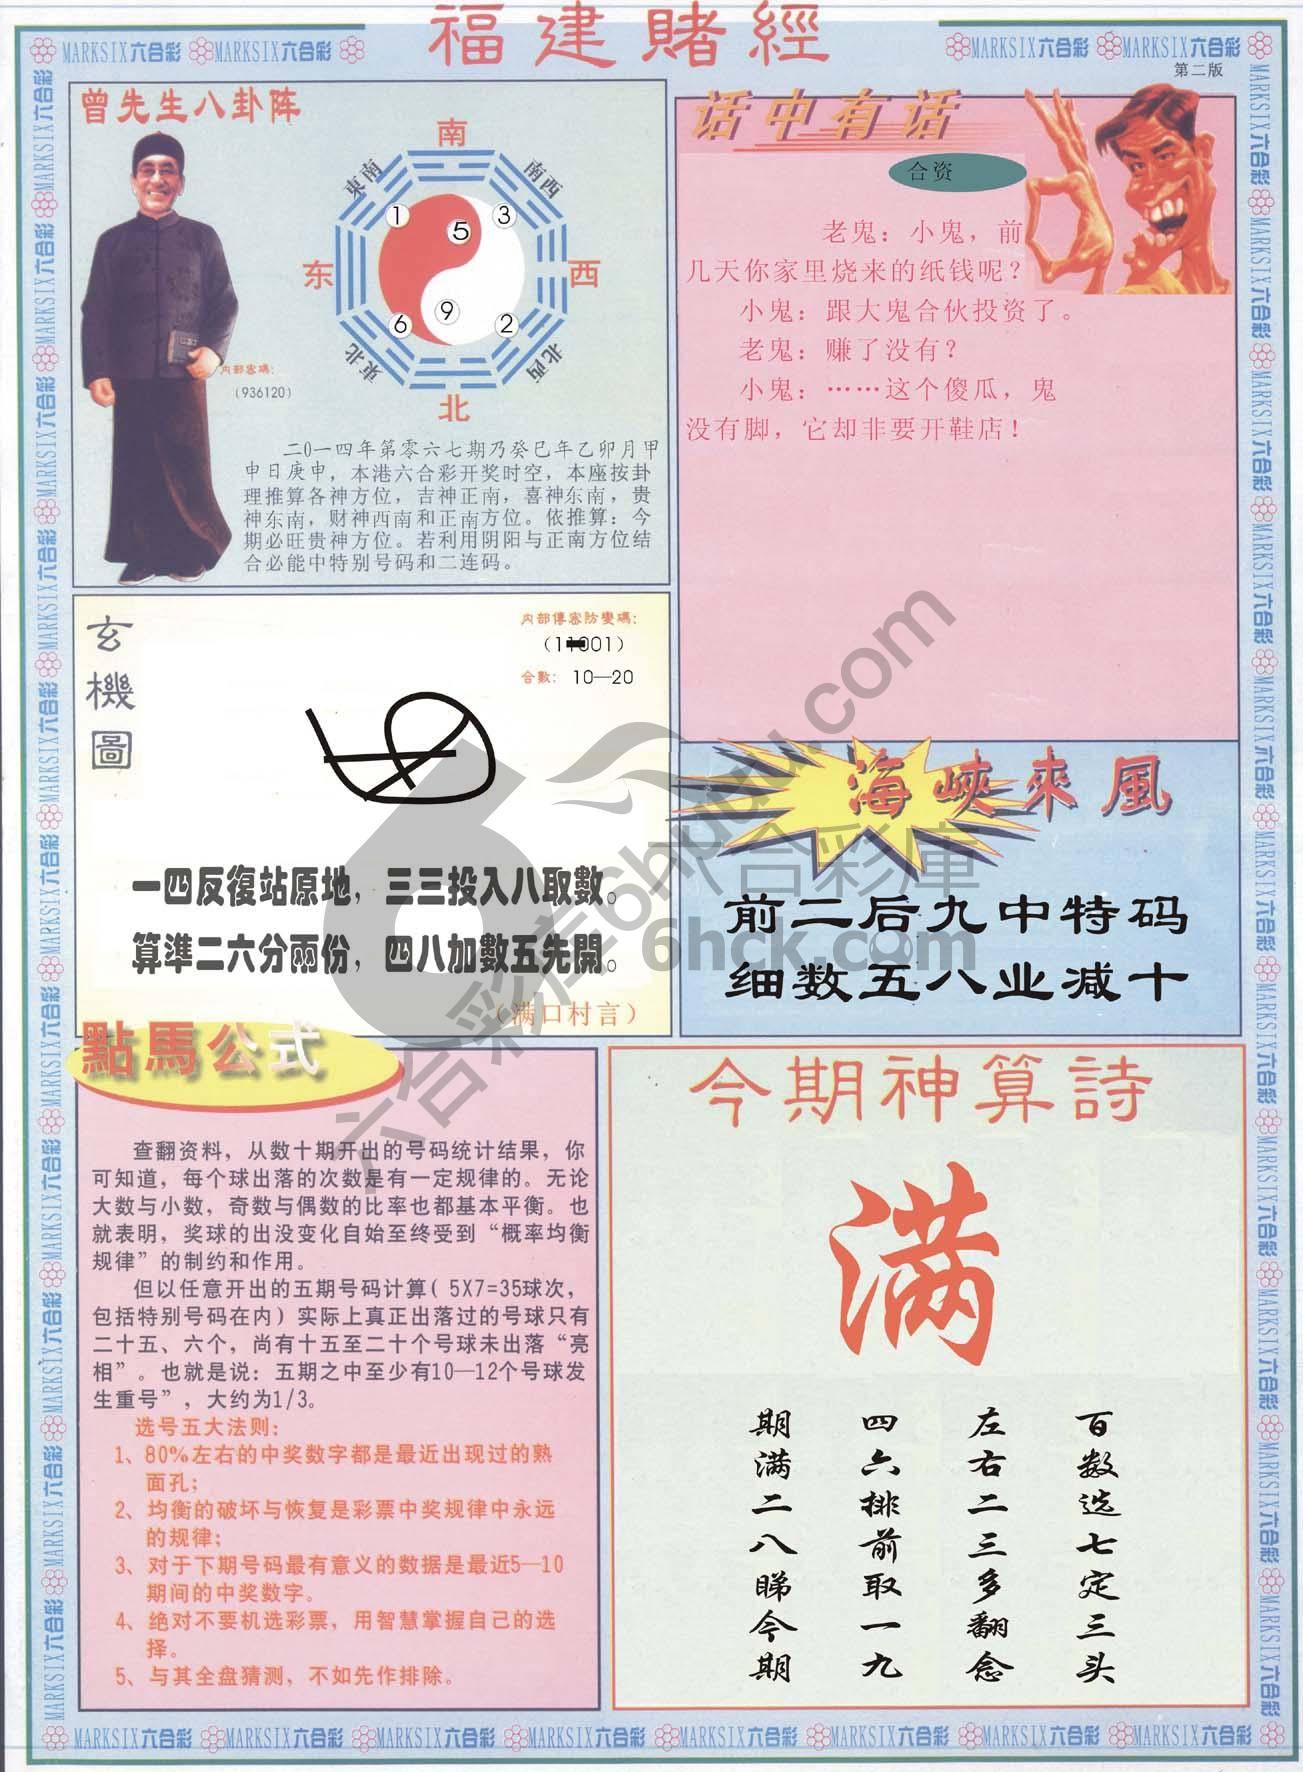 福建賭經
MARKSIX六合彩 MARKSIX六合彩
MARKSIX六合彩 MARKSIX六合彩
第二版
曾先生八卦阵
南
東南
南西
1
5
3
东
西
6
9
2
東北
北西
北
内部密碼:
(936120)
二0一四年第零六七期乃癸巳年乙卯月甲
申日庚申，本港六合彩开奖时空，本座按卦
理推算各神方位，吉神正南，喜神东南，贵
神东南，财神西南和正南方位。依推算：今
期必旺贵神方位。若利用阴阳与正南方位结
合必能中特别号码和二连码。
话中有话
合资
老鬼：小鬼，前
几天你家里烧来的纸钱呢？
小鬼：跟大鬼合伙投资了。
老鬼：赚了没有？
小鬼：……这个傻瓜，鬼
没有脚，它却非要开鞋店！
玄機圖
内部傳密防變碼:
001)
合數: 10—20
一四反復站原地，三三投入八取數。
算準二六分兩份，四八加數五先開。
（满口村言）
海峽來風
前二后九中特码
细数五八业减十
點馬公式
查翻资料，从数十期开出的号码统计结果，你
可知道，每个球出落的次数是有一定规律的。无论
大数与小数，奇数与偶数的比率也都基本平衡。也
就表明，奖球的出没变化自始至终受到“概率均衡
规律”的制约和作用。
但以任意开出的五期号码计算( 5X7=35球次，
包括特别号码在内）实际上真正出落过的号球只有
二十五、六个，尚有十五至二十个号球未出落“亮
相”。也就是说：五期之中至少有10—12个号球发
生重号”，大约为1/3。
选号五大法则：
1、80%左右的中奖数字都是最近出现过的熟
面孔；
2、均衡的破坏与恢复是彩票中奖规律中永远
的规律；
3、对于下期号码最有意义的数据是最近5—10
期间的中奖数字。
4、绝对不要机选彩票，用智慧掌握自己的选
择。
5、与其全盘猜测，不如先作排除。
今期神算詩
满
期满二八睇今期
四六排前取一九
左右二三多翻念
百数选七定三头
六合彩库6hdudu.com
六合彩庫
6hck.com
MARKSIX六合彩 MARKSIX六合彩 MARKSIX六合彩 MARKSIX六合彩 MARKSIX六合彩 MARKSIX六合彩 MARKSIX六合彩 MARKSIX六合彩